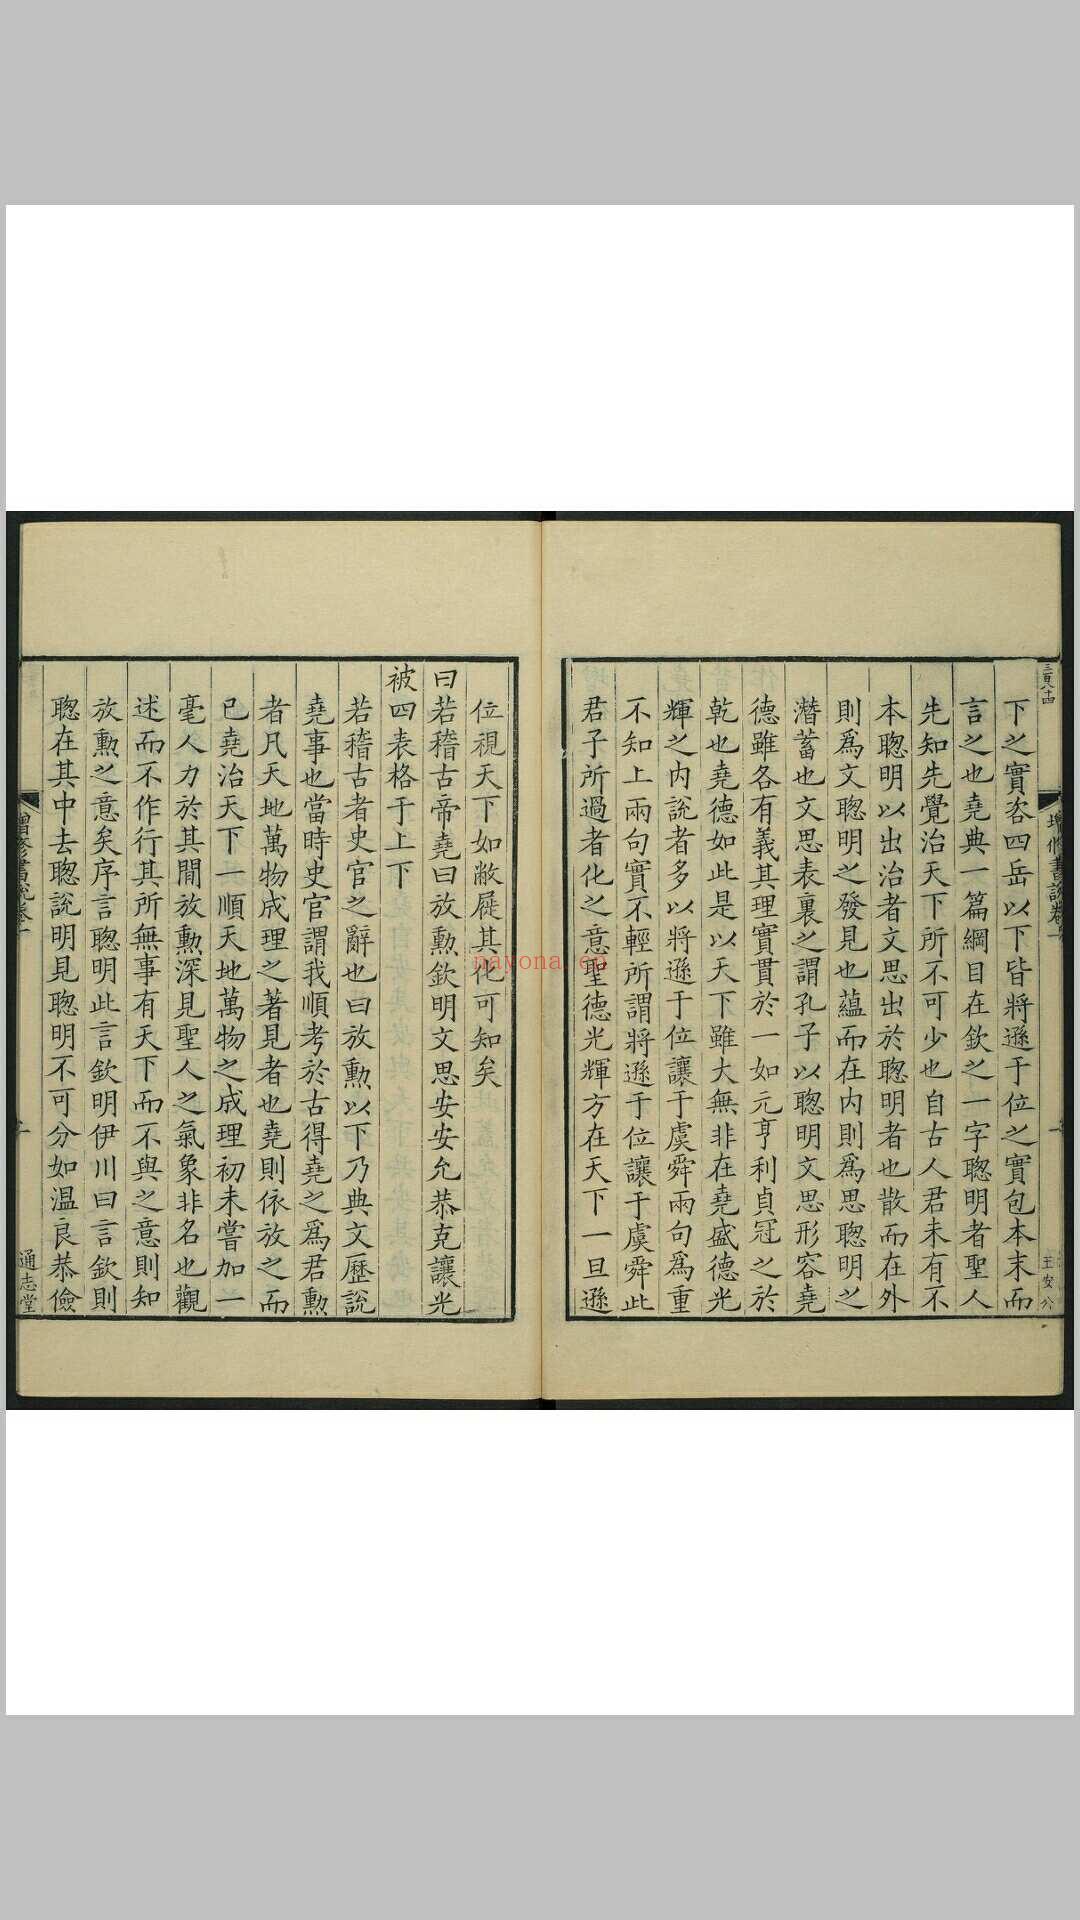 三百八十四
增修書說卷一
王安公
下之實咨四岳以下皆將遜于位之實包本末而
言之也堯典一篇綱目在欽之一字聰明者聖人
先知先覺治天下所不可少也自古人君未有不
本聰明以出治者文思出於聰明者也散而在外
則爲文聰明之發見也蘊而在內則爲思聰明之
潛蓄也文思表裏之謂孔子以聰明文思形容堯
德雖各有義其理實貫於一如元亨利貞冠之於
乾也堯德如此是以天下雖大無非在堯盛德光
輝之内說者多以將遜于位讓于虞舜兩句爲重
不知上兩句實不輕所謂將遜于位讓于虞舜此
君子所過者化之意聖德光輝方在天下一旦遜
位視天下如敝屣其化可知矣
曰若稽古帝堯曰放勳欽明文思安安允恭克讓光
被四表格于上下
若稽古者史官之辭也曰放勳以下乃典文歷說
堯事也當時史官謂我順考於古得堯之爲君勳
者凡天地萬物成理之著見者也堯則依放之而
已堯治天下一順天地萬物之成理初未嘗加一
毫人力於其間放勳深見聖人之氣象非名也觀
述而不作行其所無事有天下而不與之意則知
放勳之意矣序言聰明此言欽明伊川曰言欽則
聰在其中去聰說明見聰明不可分如溫良恭儉
增修書說卷一
通志堂
nayona.cn